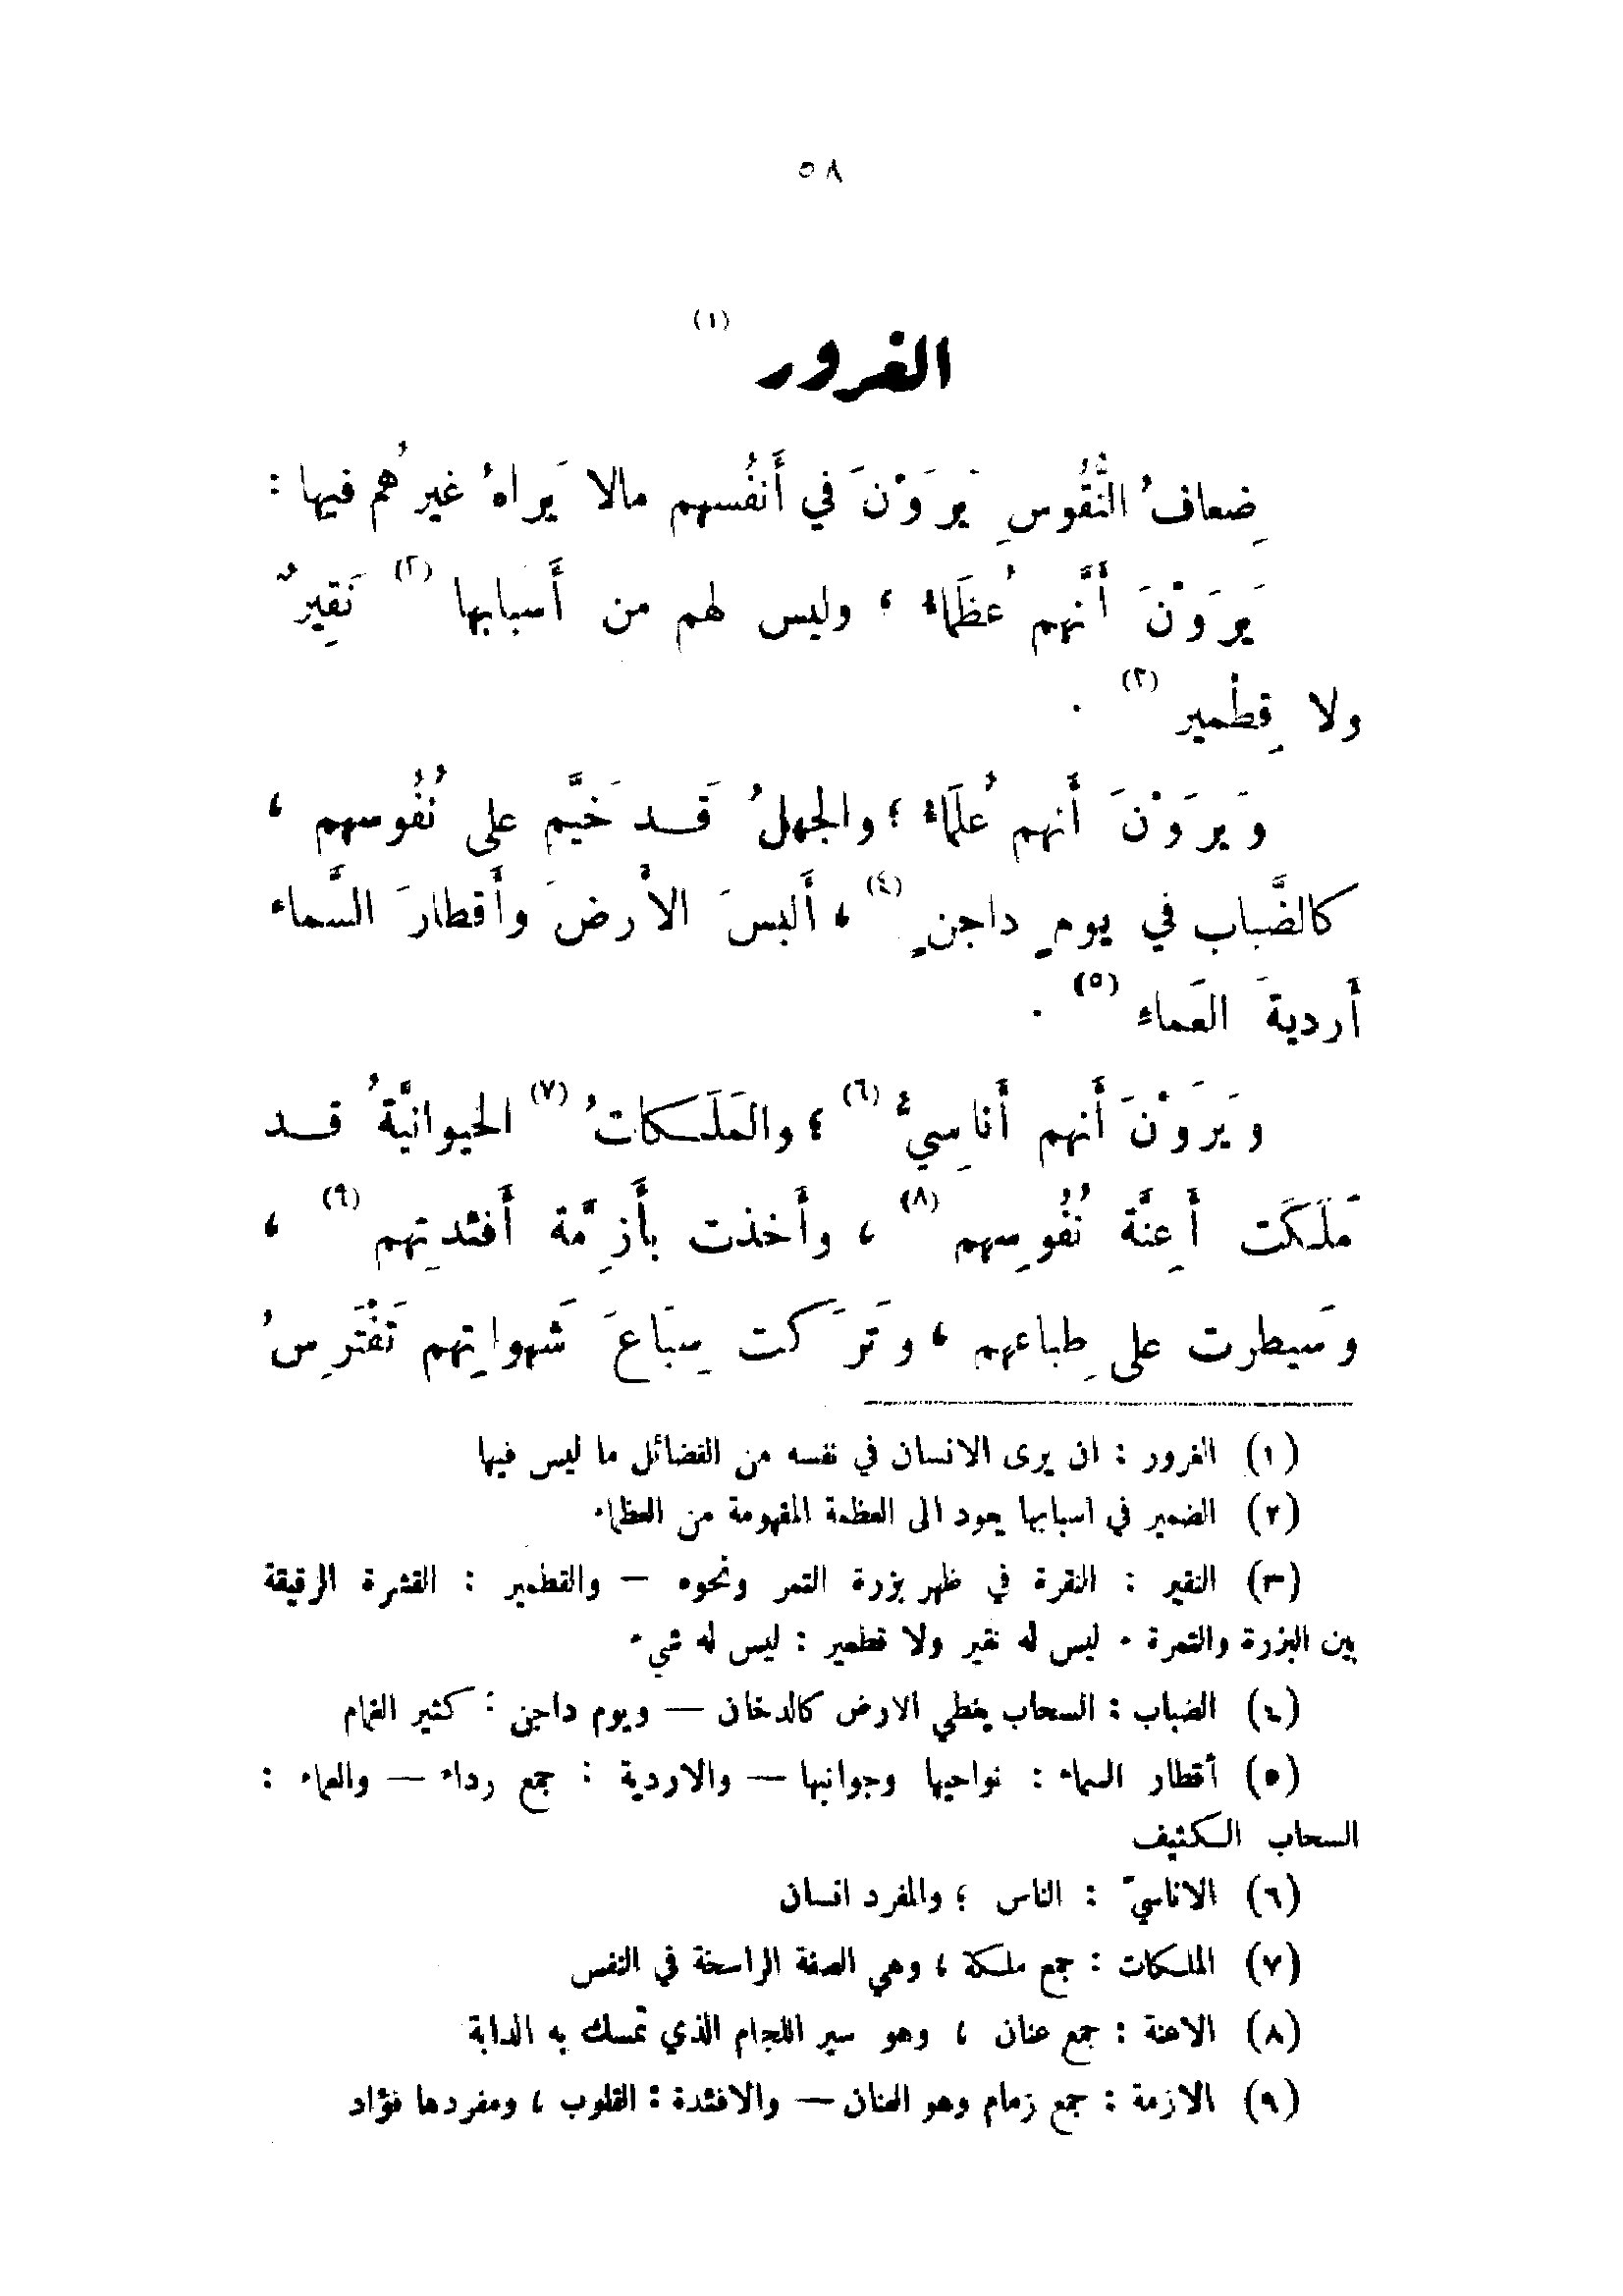 ٥٨
الغرور (١)
ضِعافُ النُّفُوسِ يَرَوْنَ في أَنفُسهم مالا يَراهُ غيرُهم فيها :
يَرَوْنَ أَنَّهم عُظَماءُ ، وليس لهم من أَسبابها (٢) نَقِيرٌ
ولا قِطْمير (٣) .
وَيَرَوْنَ أَنهم عُلَماءُ ؛ والجهلُ قَد خَيَّم على نُفُوسهم ،
كالضَّباب في يومٍ داجنٍ (٤) ، أَلبسَ الأَرضَ وأَقطارَ السَّماء
أَرديةَ العَماءِ (٥) .
ويَرَوْنَ أَنهم أَناسِيُّ (٦) ؛ والمَلَكاتُ (٧) الحيوانيَّةُ قد
مَلَكَت أَعِنَّة نُفُوسِهم (٨) ، وأَخذت بأَزِمَّة أَفئدتِهم (٩) ،
وَسَيطرت على طِباعهم ، وتَرَكت سِبَاعَ شَهواتِهم تَفْتَرِسُ
(١) الغرور : ان يرى الانسان في نفسه من الفضائل ما ليس فيها
(٢) الضمير في اسبابها يعود الى العظمة المفهومة من العظماء
(٣) النقير : النقرة في ظهر بزرة التمر ونحوه — والقطمير : القشرة الرقيقة
بين البزرة والتمرة . ليس له نقير ولا قطمير : ليس له شيء
(٤) الضباب : السحاب يغطي الارض كالدخان — ويوم داجن : كثير الغمام
(٥) أقطار السماء : نواحيها وجوانبها — والاردية : جمع رداء — والعماء :
السحاب الكثيف
(٦) الاناسيّ : الناس ؛ والمفرد انسان
(٧) الملكات : جمع ملكة ، وهي الصفة الراسخة في النفس
(٨) الاعنة : جمع عنان ، وهو سير اللجام الذي تمسك به الدابة
(٩) الازمة : جمع زمام وهو العنان — والافئدة : القلوب ، ومفردها فؤاد